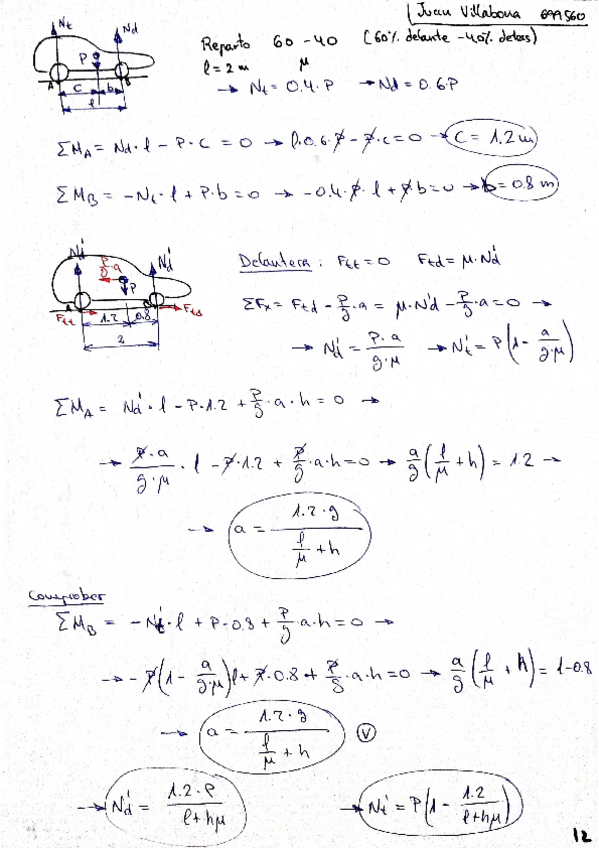 Juan Villabona 699560
Nt Nd
P
A B
c b
l
Reparto 60-40 (60% delante - 40% detras)
l = 2 m μ
→ Nt = 0.4·P → Nd = 0.6·P
ΣMA = Nd·l - P·c = 0 → l·0.6·P - P·c = 0 → c = 1.2 m
ΣMB = -Nt·l + P·b = 0 → -0.4·P·l + P·b = 0 → b = 0.8 m
Nt' Nd'
P/g·a
P
A B
Ftt Ftd
1.2 0.8
2
Delantera: Ftt = 0 Ftd = μ·Nd'
ΣFx = Ftd - P/g·a = μ·Nd' - P/g·a = 0 →
→ Nd' = P·a/g·μ → Nt' = P(1 - a/g·μ)
ΣMA = Nd'·l - P·1.2 + P/g·a·h = 0 →
→ P·a/g·μ · l - P·1.2 + P/g·a·h = 0 → a/g (l/μ + h) = 1.2 →
→ a = 1.2·g / (l/μ + h)
Comprobar
ΣMB = -Nt'·l + P·0.8 + P/g·a·h = 0 →
→ -P(1 - a/g·μ)l + P·0.8 + P/g·a·h = 0 → a/g (l/μ + h) = l-0.8
→ a = 1.2·g / (l/μ + h) V
→ Nd' = 1.2·P / (l+hμ) → Nt' = P(1 - 1.2/(l+hμ))
12